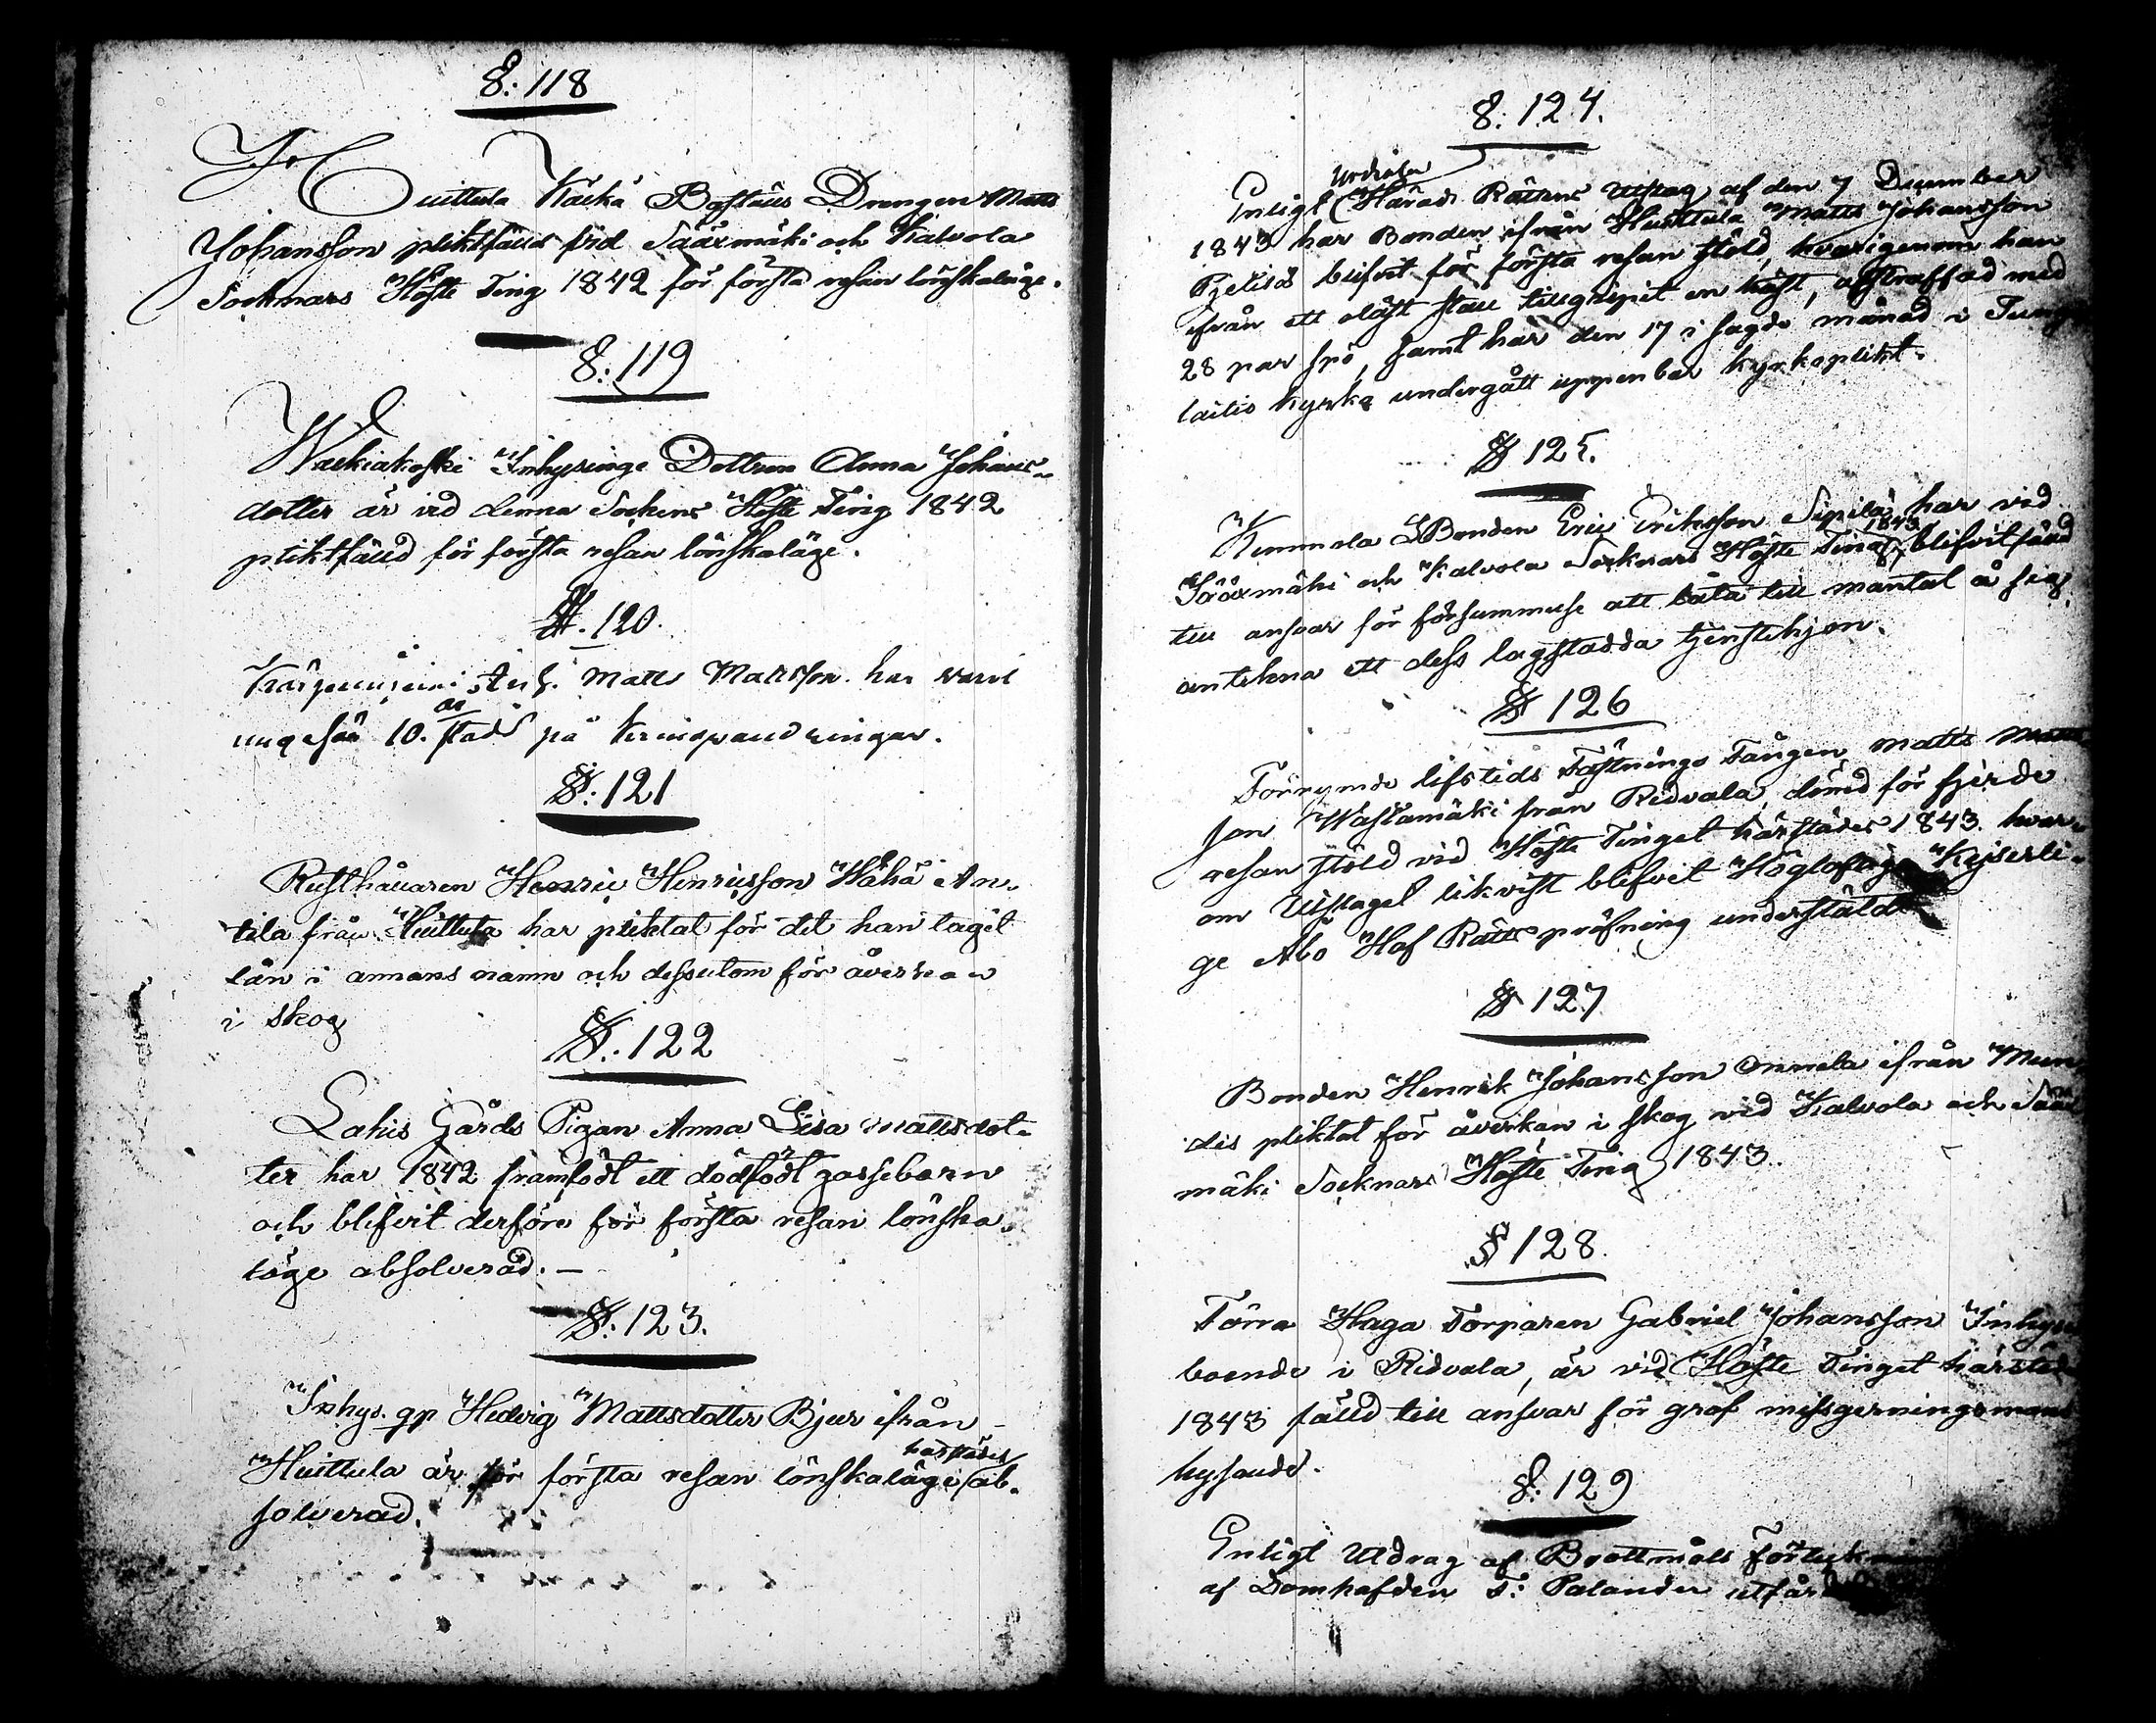 §: 118
Huittula Käckä Boställs Drengen Matts
Johansson pliktfälld vid Sääxmäki och Kalvola
Socknars Höste Ting 1842 för första resan lönskaläge.
§: 119
Waskiakoski Inhysinge Dottren Anna Johans-
dotter är vid denna Sockens Höste Ting 1842
pliktfälld för första resan lönskaläge.
§. 120.
Matts Mattsson har varit
ungefär 10. års stadd på kringvandringar.
§: 121
Rusthållaren Henric Henricsson Wähä An-
tila från Huittula har pliktat för det han tagit
lån i annans namn och dessutom för åverkan
i skog
§: 122
Lahis Gårds Pigan Anna Lisa Mattsdot-
ter har 1842 framfödt ett dödfödt gossebarn
och blifvit derföre för första resan lönska-
läge absolverad. —
§: 123.
Inhys. qp Hedvig Mattsdotter Bjur ifrån
Huittula är för första resan lönskaläge härstädes ab-
solverad.
§: 124.
Enligt Urdiala Härads Rättens Utslag af den 7 December
1843 har Bonden ifrån Huittula Matts Johansson
Pjelisä blifvit för första resan stöld, hvarigenom han
ifrån ett olåst stall tillgripit en häst, afstraffad med
28 par spö, samt har den 17 i sagde månad i Tung
laitio kyrka undergått uppenbar kyrkoplikt.
§ 125.
Kemmola Bonden Eric Ericsson Sipilä har vid
Sääxmäki och Kalvola Socknars Höste Ting 1843 blifvit fälld
till ansvar för försummelse att låta till mantal å sig
anteckna ett dess lagstadda tjenstehjon.
§ 126
Förrymde lifstids Fästnings Fången Matts Matts
son Wastamäki från Ridvala, dömd för fjerde
resan stöld vid Höste Tinget härstädes 1843. hvar-
om Utslaget likväl blifvit Högloflige Kejserli-
ge Åbo Hof Rätts pröfning underställdt
§ 127
Bonden Henrik Johansson Onnela ifrån Mun
dis pliktat för åverkan i skog vid Kalvola och Sääx
mäki Socknars Höste Ting 1843.
§ 128.
Förra Haga Torparen Gabriel Johansson Inhys
boende i Ridvala, är vid Höste Tinget härstäd
1843 fälld till ansvar för graf missgerningsmans
hysande.
§: 129
Enligt Utdrag af Brottmåls Förteckning
af Domhafden F: Palander utfärd